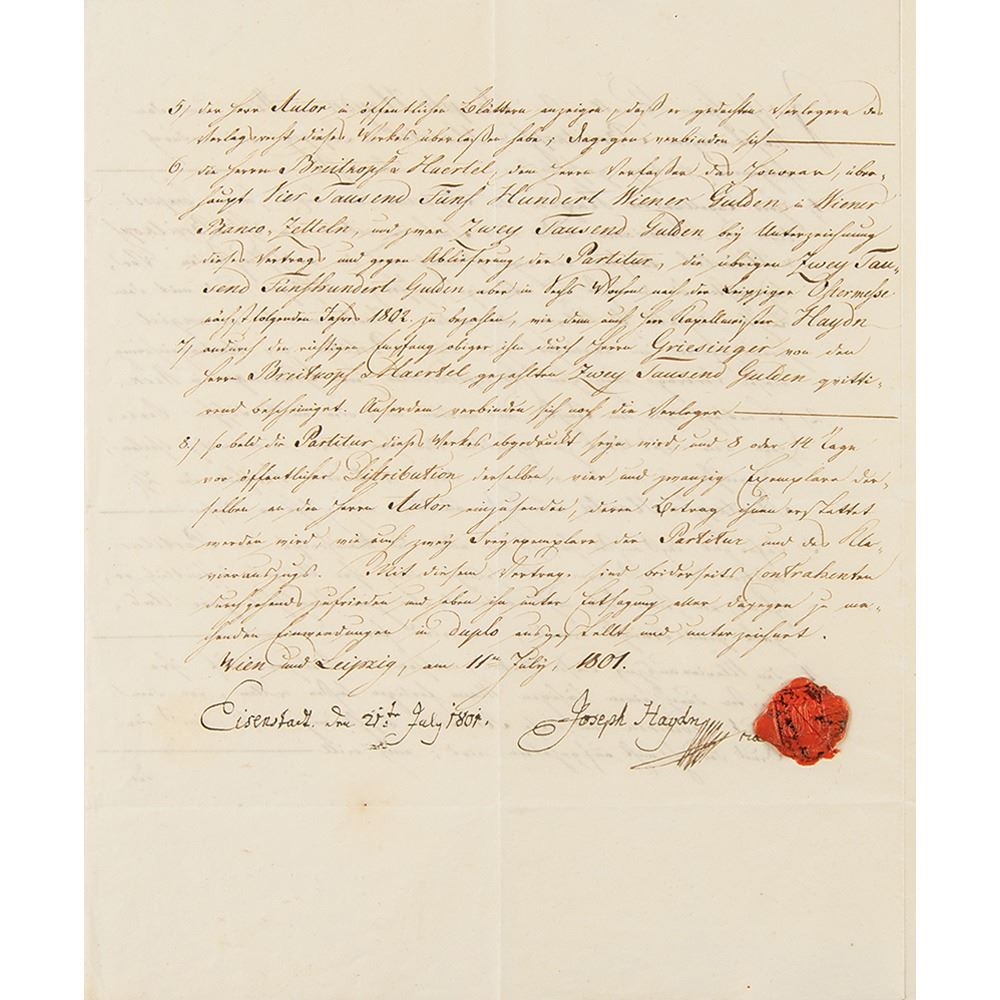 5.) der Herr Autor in öffentlichen Blättern anzeigen, daß er gedachten Verlegern das
Verlagsrecht dieses Werkes überlaßen habe; dagegen verbinden sich
6.) die Herrn Breitkopf & Haertel, dem Herrn Verfaßer das Honorar, über-
haupt Vier Tausend Fünf Hundert Wiener Gulden in Wiener
Banco-Zetteln, und zwar Zwey Tausend Gulden bey Unterzeichnung
dieses Vertrags und gegen Ablieferung der Partitur, die übrigen Zwey Tau-
send Fünfhundert Gulden aber in Sechs Wochen nach der Leipziger Ostermesse
nächstfolgenden Jahres 1802. zu bezahlen, wie dem auch Herr Kapellmeister Haydn
7.) andurch den richtigen Empfang obiger ihm durch Herrn Griesinger von den
Herrn Breitkopf & Haertel gezahlten Zwey Tausend Gulden quitti-
rend bescheiniget. Außerdem verbinden sich noch die Verleger
8.) so bald die Partitur dieses Werkes abgedruckt seyn wird, und 8 oder 14 Tage
vor öffentlicher Distribution derselben, vier und zwanzig Exemplare der-
selben an den Herrn Autor einzusenden, deren Betrag ihnen erstattet
werden wird, wie auch zwey Freyexemplare der Partitur und des Kla-
vierauszugs. Mit diesem Vertrag sind beiderseits Contrahenten
durchgehends zufrieden und haben ihn unter Entsagung aller dagegen zu ma-
chenden Einwendungen in duplo ausgestellt und unterzeichnet.
Wien und Leipzig, am 11ten July, 1801.
Eisenstadt. den 21ten July 1801.
Joseph Haydn